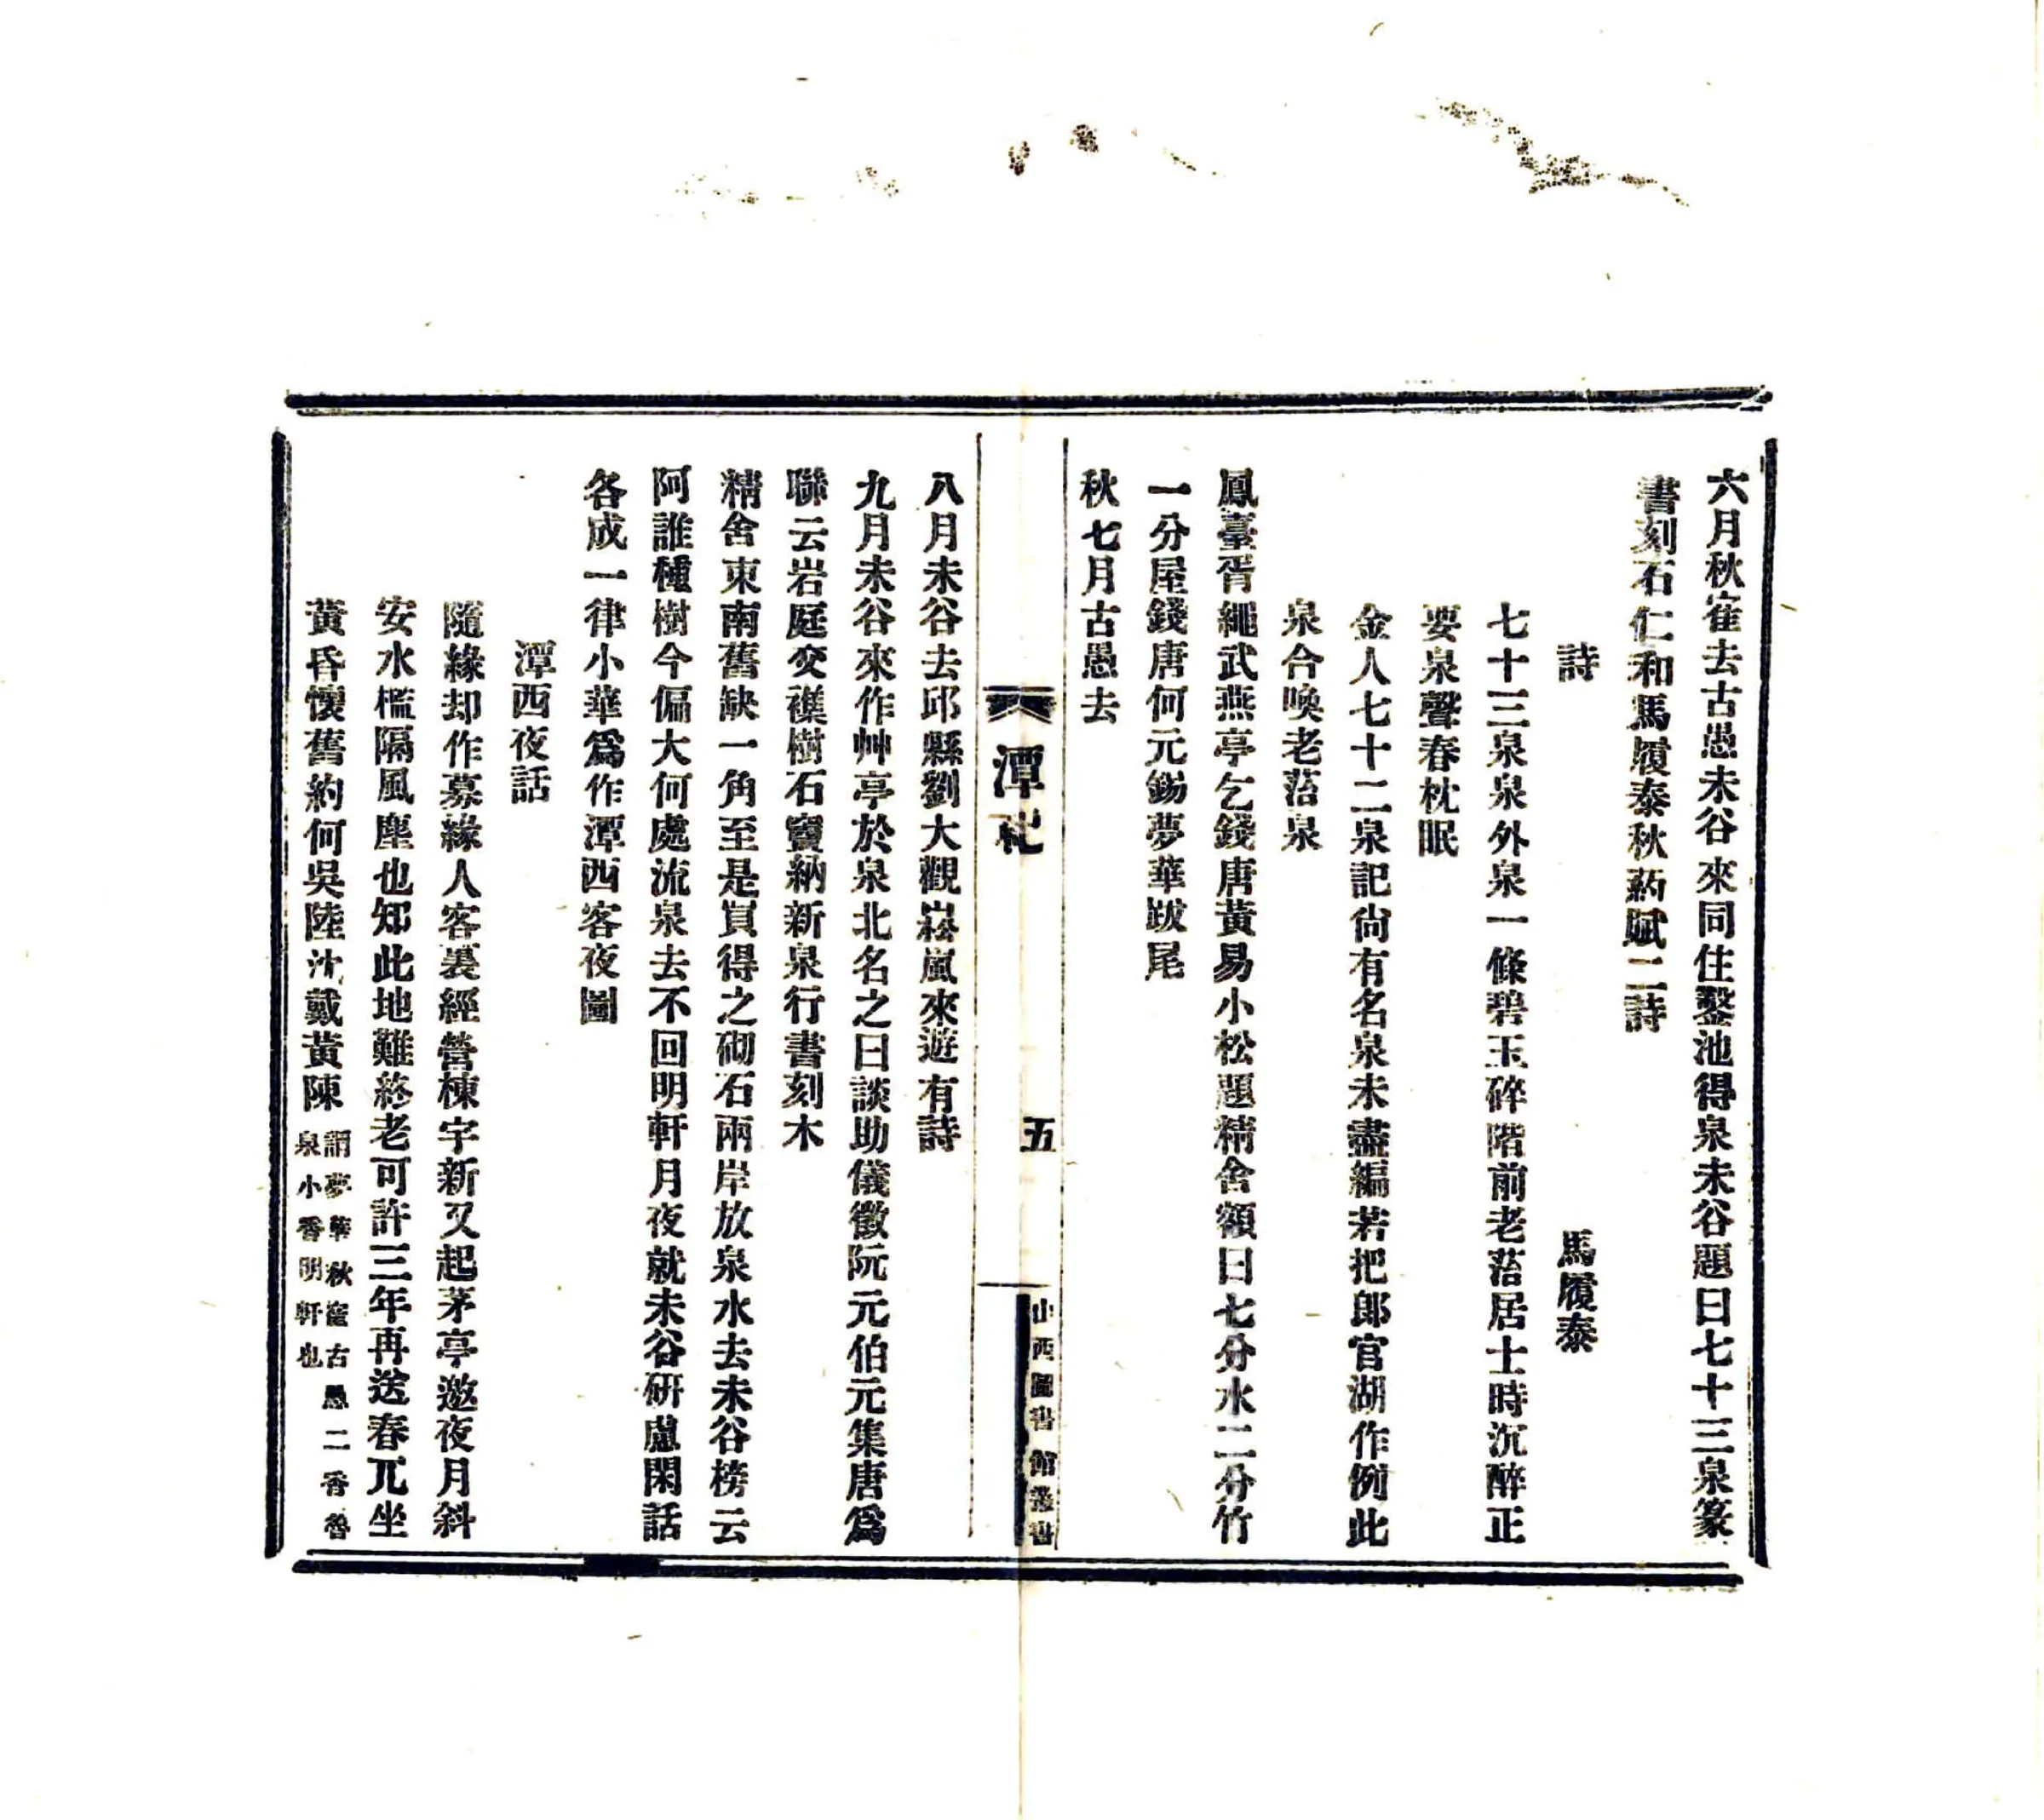 六月秋寉去古愚未谷來同住鑿池得泉未谷題曰七十三泉篆
書刻石仁和馬履泰秋葯賦二詩
詩 馬履泰
七十三泉泉外泉一條碧玉碎階前老菭居士時沉醉正
要泉聲春枕眠
金人七十二泉記尙有名泉未盡編若把郎官湖作例此
泉合喚老菭泉
鳳臺胥繩武燕亭乞錢唐黃易小松題精舍額曰七分水二分竹
一分屋錢唐何元錫夢華跋尾
秋七月古愚去
潭西
五
山西圖書館叢書
八月未谷去邱縣劉大觀崧嵐來遊有詩
九月未谷來作艸亭於泉北名之曰談助儀徵阮元伯元集唐爲
聯云岩庭交襍樹石竇納新泉行書刻木
精舍東南舊缺一角至是買得之砌石兩岸放泉水去未谷榜云
阿誰種樹今偏大何處流泉去不回明軒月夜就未谷硏廬閑話
各成一律小華爲作潭西客夜圖
潭西夜話
隨緣却作募緣人客裏經營棟宇新又起茅亭邀夜月斜
安水檻隔風塵也知此地難終老可許三年再送春兀坐
黃昏懷舊約何吳陸沈戴黃陳
謂夢華秋寉古愚二香魯
泉小香明軒也